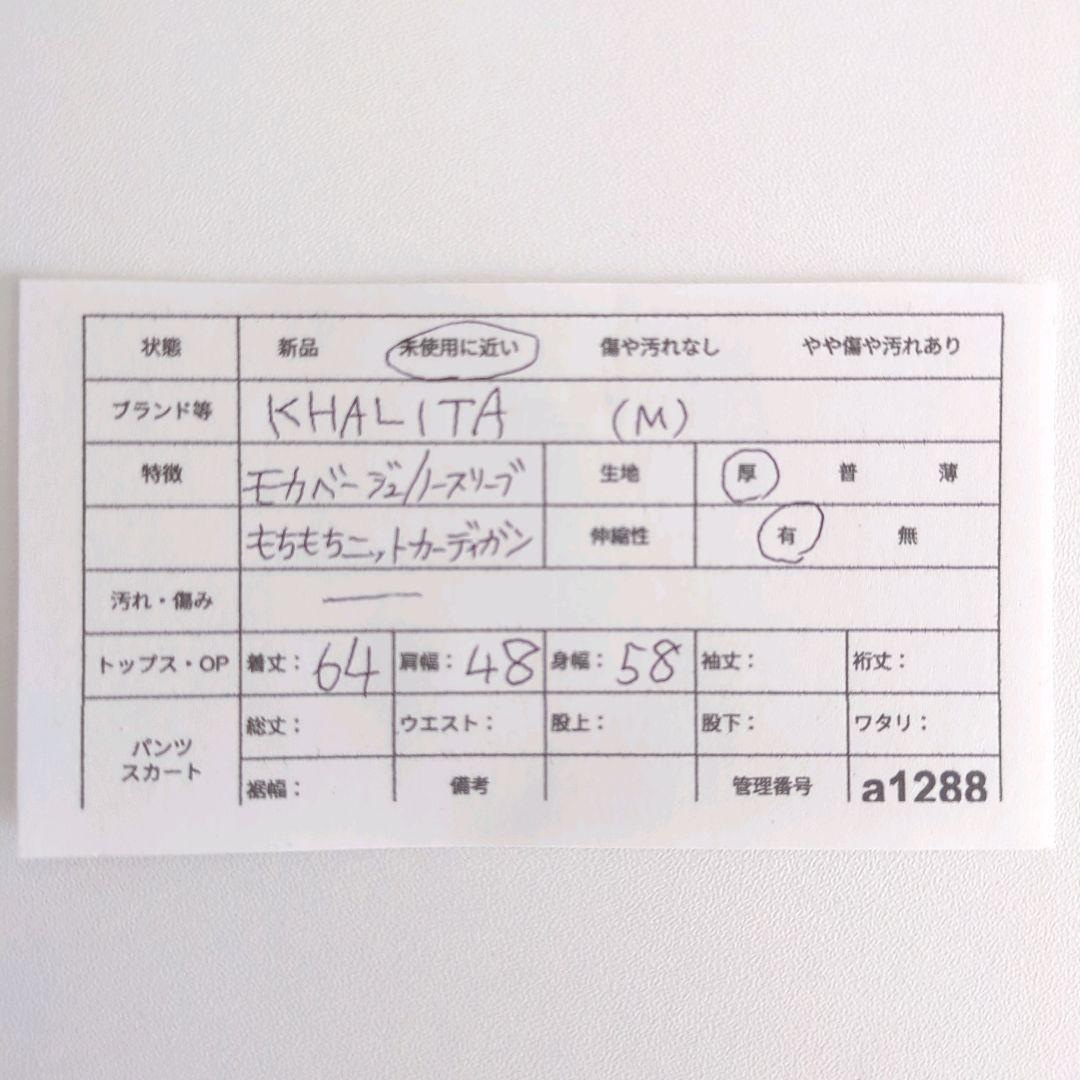 状態 新品 未使用に近い 傷や汚れなし やや傷や汚れあり
ブランド等 KHALITA (M)
特徴 モカベージュ/ノースリーブ 生地 厚 普 薄
もちもちニットカーディガン 伸縮性 有 無
汚れ・傷み ―
トップス・OP 着丈：64 肩幅：48 身幅：58 袖丈： 裄丈：
パンツ スカート 総丈： ウエスト： 股上： 股下： ワタリ：
裾幅： 備考 管理番号 a1288